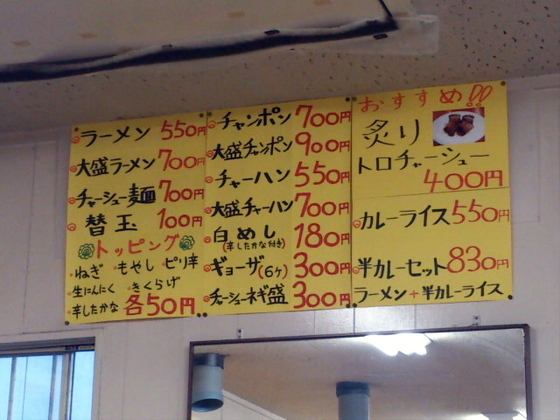 ラーメン 550円
大盛ラーメン 700円
チャーシュー麺 700円
替玉 100円
トッピング
ねぎ もやし ピリ辛
生にんにく きくらげ
辛したかな 各50円
チャンポン 700円
大盛チャンポン 900円
チャーハン 550円
大盛チャーハン 700円
白めし 180円
(辛したかな付き)
ギョーザ(6ヶ) 300円
チャーシューネギ盛 300円
おすすめ!!
炙り
トロチャーシュー
400円
カレーライス 550円
半カレーセット 830円
ラーメン+半カレーライス